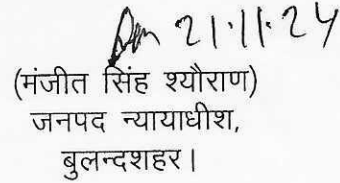 21.11.24
(मंजीत सिंह श्यौराण)
जनपद न्यायाधीश,
बुलन्दशहर।